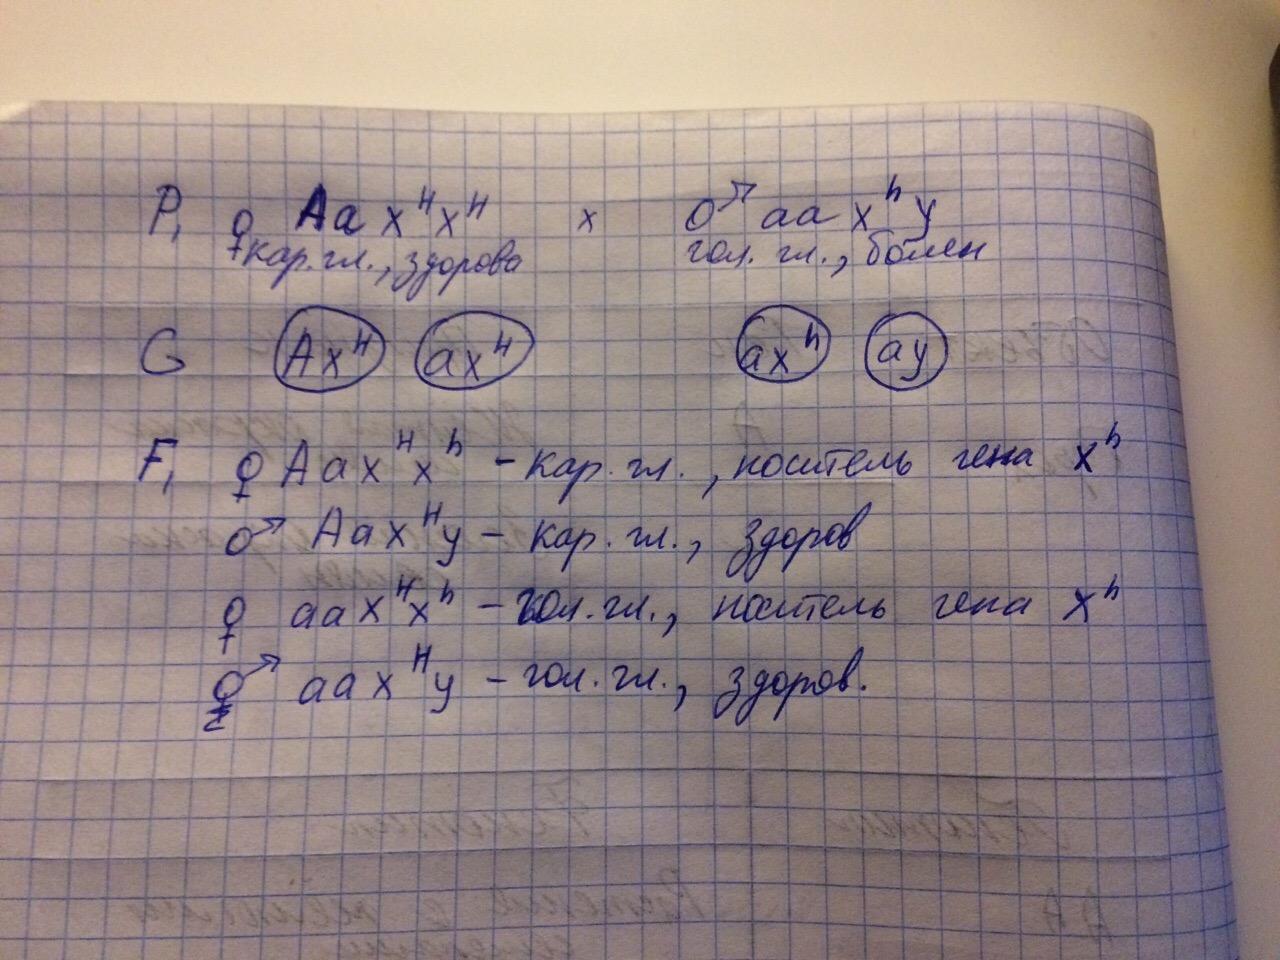 P₁ ♀ Aa xᴴxᴴ x ♂ aa xʰy
кар. гл., здорова гол. гл., болен
G Axᴴ axᴴ axʰ ay
F₁ ♀ Aa xᴴxʰ – кар. гл., носитель гена xʰ
♂ Aa xᴴy – кар. гл., здоров
♀ aa xᴴxʰ – гол. гл., носитель гена xʰ
♂ aa xᴴy – гол. гл., здоров.